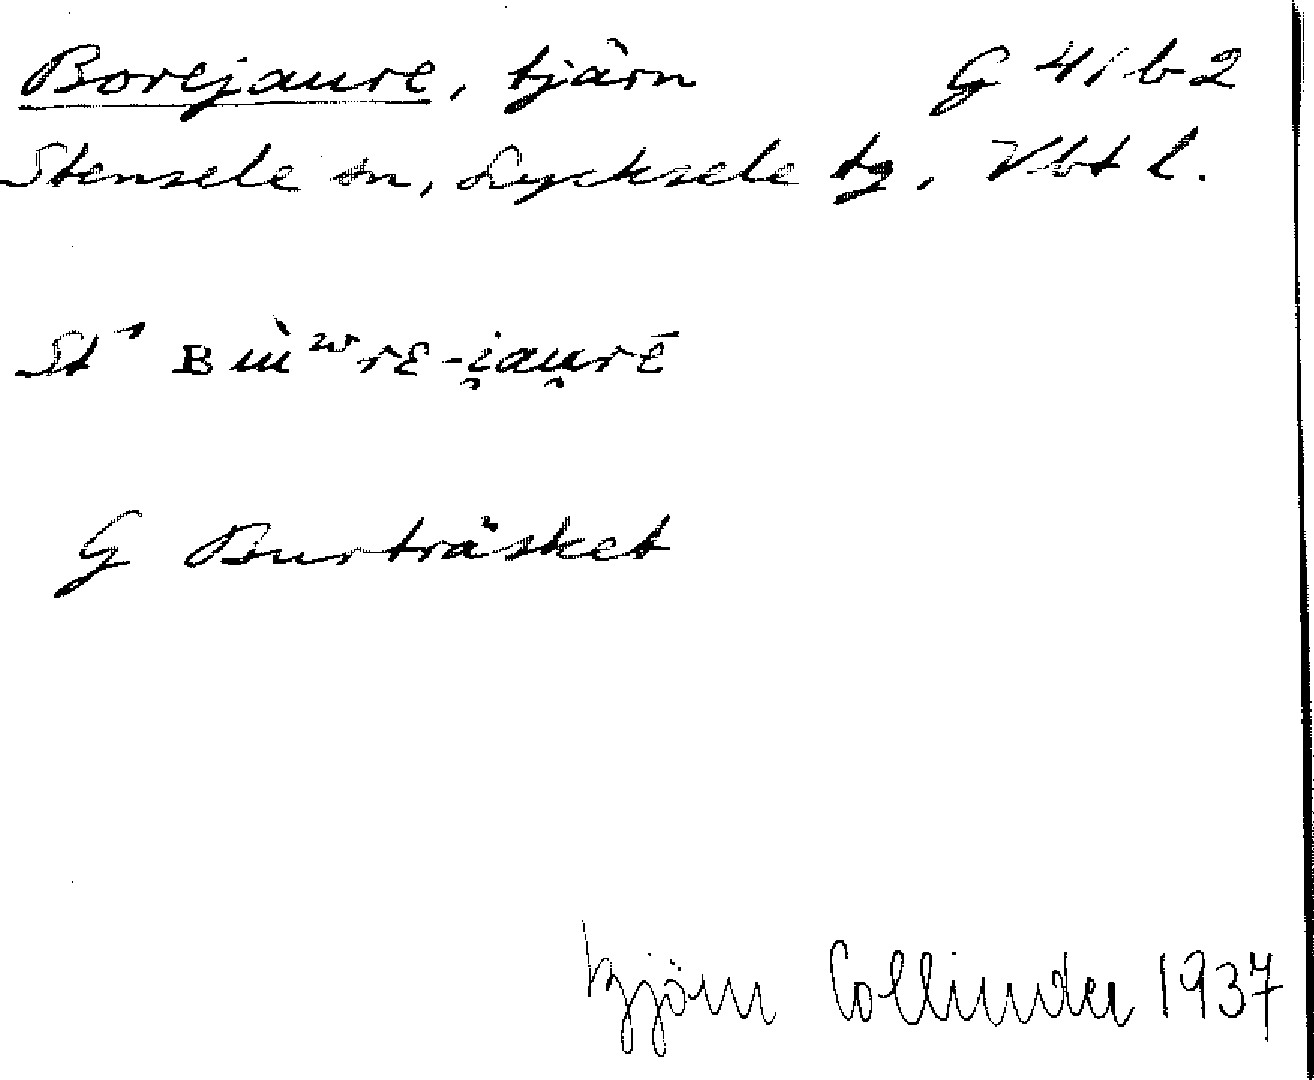 Borejaure, tjärn G 41 b 2
Stensele sn, Lycksele tg, Vbt l.
St
G Burträsket
Björn Collinder 1937